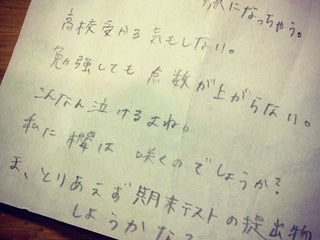 になっちゃう。
高校受かる気もしない。
勉強しても点数が上がらない。
こんなん泣けるよね。
私に桜は咲くのでしょうか?
ま、とりあえず期末テストの提出物
しようかな?